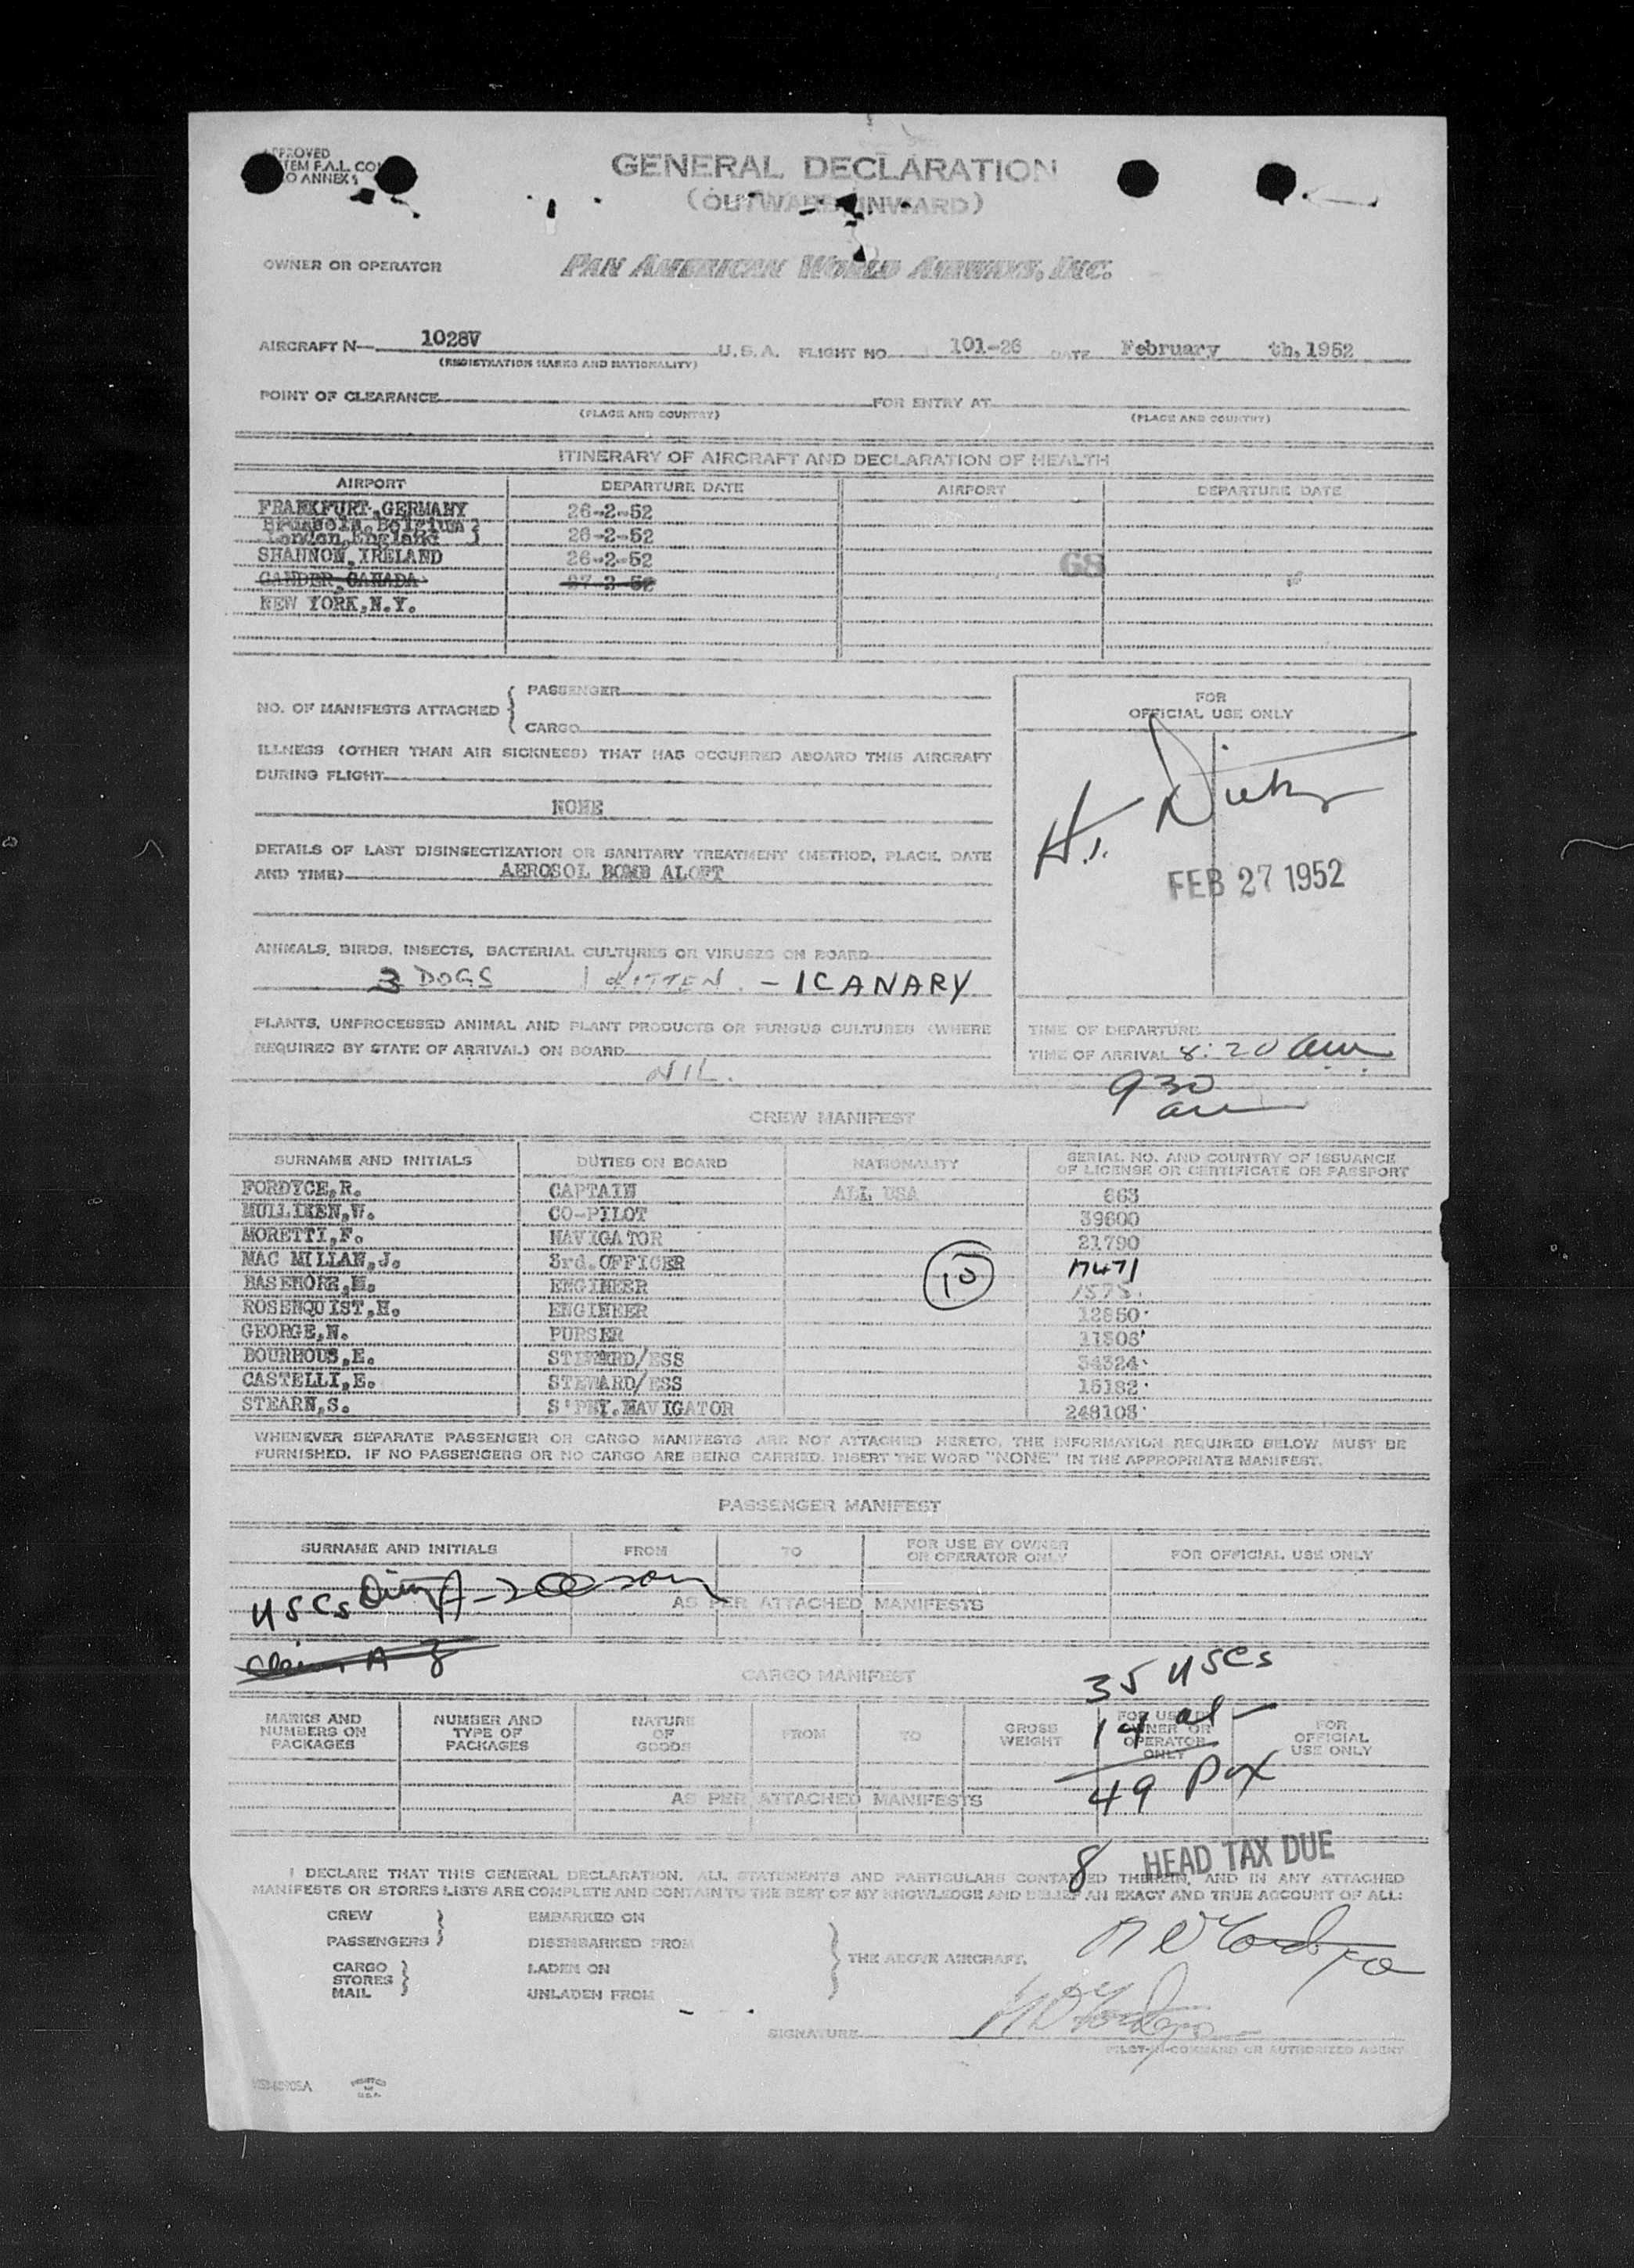 GENERAL DECLARATION
(OUTWARD INWARD)
OWNER OR OPERATOR PAN AMERICAN WORLD AIRWAYS, INC.
AIRCRAFT N— 1028V U.S.A. FLIGHT NO. 101-26 DATE February th,1952
(REGISTRATION MARKS AND NATIONALITY)
POINT OF CLEARANCE FOR ENTRY AT
(PLACE AND COUNTRY) (PLACE AND COUNTRY)
ITINERARY OF AIRCRAFT AND DECLARATION OF HEALTH
AIRPORT DEPARTURE DATE AIRPORT DEPARTURE DATE
FRANKFURT,GERMANY 26-2-52
Brussels,Belgium )
London,England ) 26-2-52
SHANNON,IRELAND 26-2-52 G8
GANDER,CANADA 27-2-52
NEW YORK,N.Y.
NO. OF MANIFESTS ATTACHED { PASSENGER
CARGO
FOR
OFFICIAL USE ONLY
ILLNESS (OTHER THAN AIR SICKNESS) THAT HAS OCCURRED ABOARD THIS AIRCRAFT
DURING FLIGHT
NONE
DETAILS OF LAST DISINSECTIZATION OR SANITARY TREATMENT (METHOD, PLACE, DATE
AND TIME) AEROSOL BOMB ALOFT
FEB 27 1952
ANIMALS, BIRDS, INSECTS, BACTERIAL CULTURES OR VIRUSES ON BOARD
3 DOGS 1 KITTEN. - 1 CANARY
PLANTS, UNPROCESSED ANIMAL AND PLANT PRODUCTS OR FUNGUS CULTURES (WHERE
REQUIRED BY STATE OF ARRIVAL) ON BOARD
NIL.
TIME OF DEPARTURE
TIME OF ARRIVAL 8:20 am
930
am
CREW MANIFEST
SURNAME AND INITIALS DUTIES ON BOARD NATIONALITY SERIAL NO. AND COUNTRY OF ISSUANCE
OF LICENSE OR CERTIFICATE OR PASSPORT
FORDYCE,R. CAPTAIN ALL USA 663
MULLIKEN,W. CO-PILOT 39600
MORETTI,F. NAVIGATOR 21790
MAC MILLAN,J. 3rd.OFFICER 17471
BASEMORE,M. ENGINEER 1575.
ROSENQUIST,H. ENGINEER 12850
GEORGE,N. PURSER 11506
BOURHOUS,E. STEWARD/ESS 34324
CASTELLI,E. STEWARD/ESS 15182
STEARN,S. NAVIGATOR 248103
10
WHENEVER SEPARATE PASSENGER OR CARGO MANIFESTS ARE NOT ATTACHED HERETO, THE INFORMATION REQUIRED BELOW MUST BE
FURNISHED. IF NO PASSENGERS OR NO CARGO ARE BEING CARRIED, INSERT THE WORD "NONE" IN THE APPROPRIATE MANIFEST.
PASSENGER MANIFEST
SURNAME AND INITIALS FROM TO FOR USE BY OWNER
OR OPERATOR ONLY FOR OFFICIAL USE ONLY
USCs
AS PER ATTACHED MANIFESTS
CARGO MANIFEST
35 USCs
14 al
49 Pax
MARKS AND
NUMBERS ON
PACKAGES NUMBER AND
TYPE OF
PACKAGES NATURE
OF
GOODS FROM TO GROSS
WEIGHT FOR USE BY
OWNER OR
OPERATOR
ONLY FOR
OFFICIAL
USE ONLY
AS PER ATTACHED MANIFESTS
8 HEAD TAX DUE
I DECLARE THAT THIS GENERAL DECLARATION, ALL STATEMENTS AND PARTICULARS CONTAINED THEREIN, AND IN ANY ATTACHED
MANIFESTS OR STORES LISTS ARE COMPLETE AND CONTAIN TO THE BEST OF MY KNOWLEDGE AND BELIEF AN EXACT AND TRUE ACCOUNT OF ALL:
CREW } EMBARKED ON
PASSENGERS } DISEMBARKED FROM
CARGO } LADEN ON } THE ABOVE AIRCRAFT.
STORES }
MAIL } UNLADEN FROM
SIGNATURE
PILOT-IN-COMMAND OR AUTHORIZED AGENT
PRINTED
IN
U.S.A.